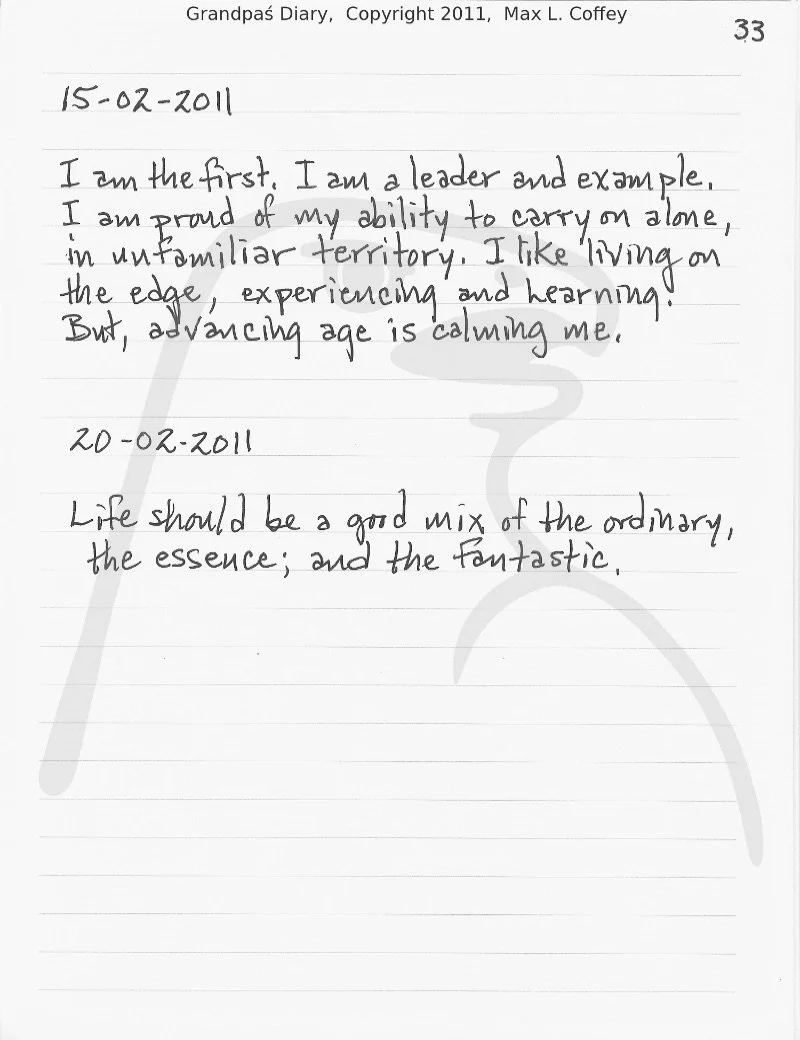 Grandpaś Diary, Copyright 2011, Max L. Coffey
33
15-02-2011
I am the first. I am a leader and example.
I am proud of my ability to carry on alone,
in unfamiliar territory. I like living on
the edge, experiencing and learning.
But, advancing age is calming me.
20-02-2011
Life should be a good mix of the ordinary,
the essence; and the fantastic.